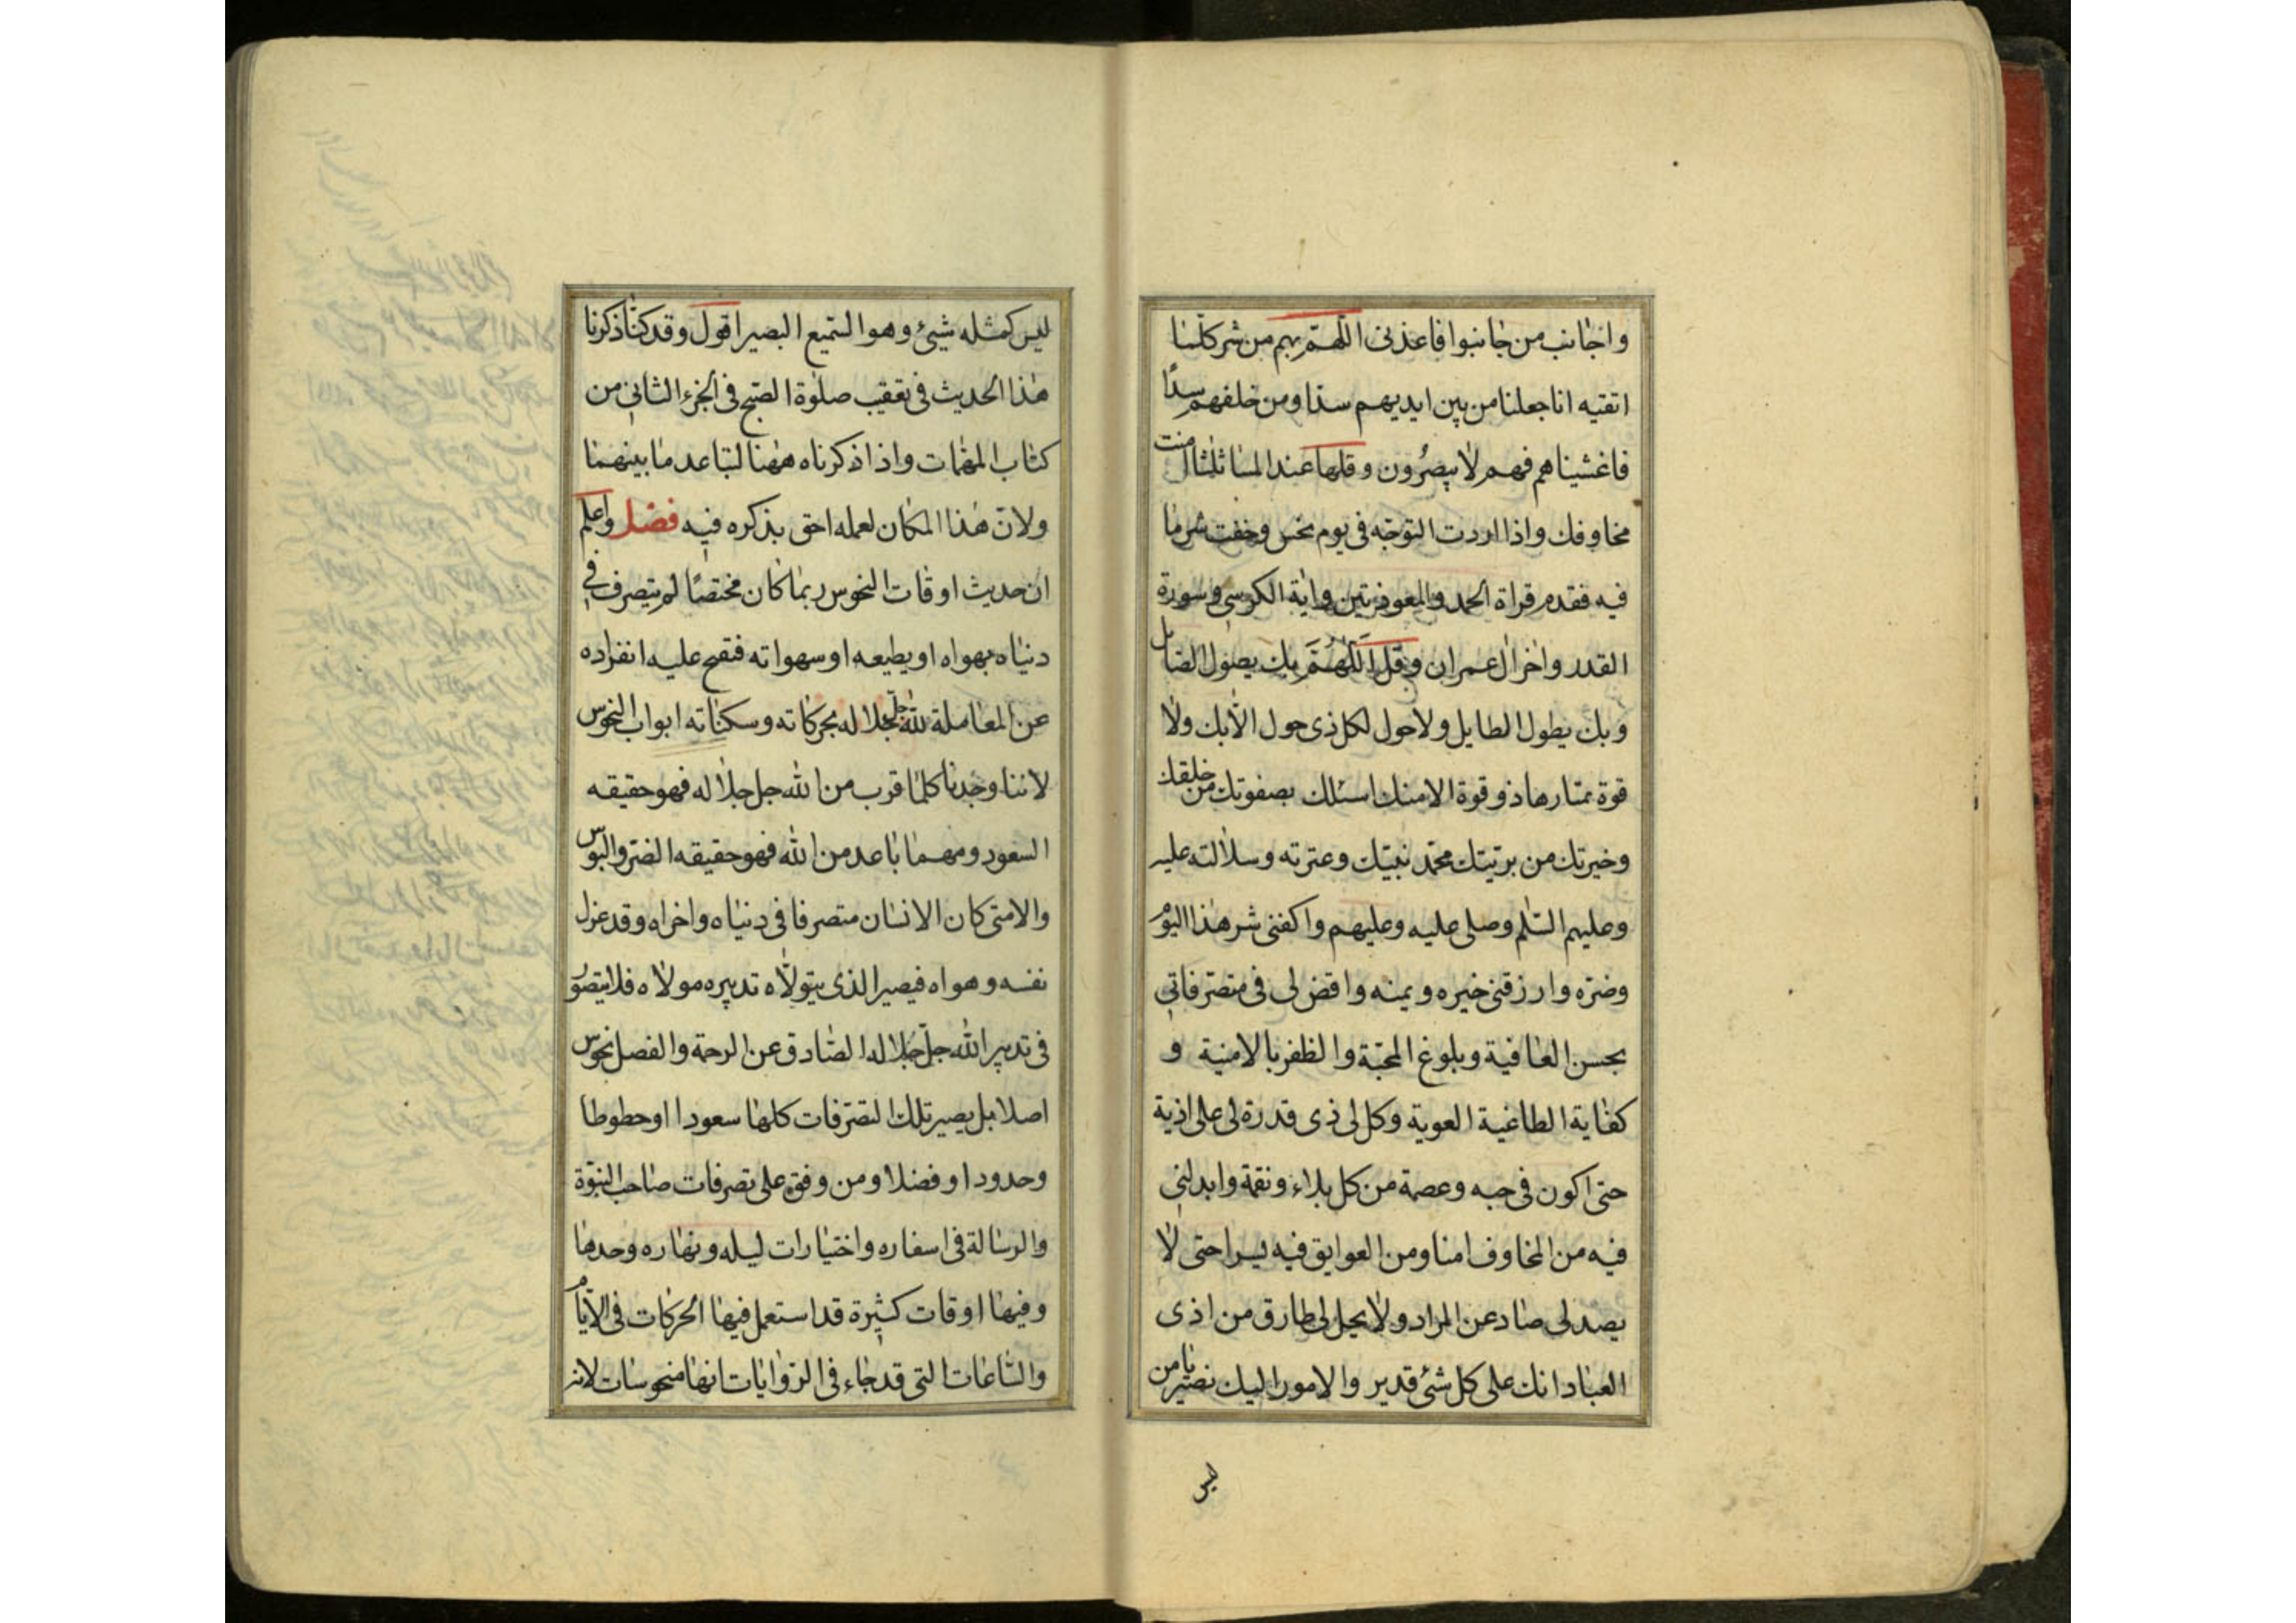 واجانب من جانبوا فاعذنى اللّهم بهم من شر كلما
اتقيه انا جعلنا من بين ايديهم سدّا ومن خلفهم سدًّا
فاغشيناهم فهم لا يبصرون وقلها عند المسا ثلثا امنت
مخاوفك واذا اردت التوجّه فى يوم نحس وخفت شر ما
فيه فقدم قراة الحمد والمعوذتين واية الكرسى وسورة
القدر واخر ال عمران وقل اَللّهُمَّ بك يصول الصايل
وبك يطول الطايل ولا حول لكل ذى حول الّا بك ولا
قوة يمتارها ذو قوة الا منك اسئلك بصفوتك من خلقك
وخيرتك من بريّتك محمّد نبيّك وعترته وسلالته عليه
وعليهم السّلم وصلى عليه وعليهم واكفنى شر هذا اليوم
وضرّه وارزقنى خيره ويمنه واقض لى فى متصرفاتى
بحسن العافية وبلوغ المحبّة والظفر بالامنية و
كفاية الطاغية الغوية وكل لى ذى قدرة لى على اذية
حتى اكون فى جبه وعصمة من كل بلاء ونقمة وابدلنى
فيه من المخاوف امنا ومن العوايق فيه يسرا حتى لا
يصدلى صاد عن المراد ولا يحل لى طارق من اذى
العباد انك على كل شئ قدير والامور اليك تصير يا من
ليس
ليس كمثله شيئ وهو السّميع البصير اقول وقد كنّا ذكرنا
هذا الحديث فى تعقيب صلوة الصبح فى الجزء الثانى من
كتاب المهمّات واذا ذكرناه ههنا لتباعد ما بينهما
ولانّ هذا المكان لعمله احق بذكره فيه فصل واعلم
ان حديث اوقات النحوس ربما كان مختصًا لم يتصرف فى
دنياه بهواه او يطبعه او سهواته فتفتح عليه انفراده
عن المعاملة لله جل جلاله بحركاته وسكناته ابواب النحوس
لاننا وجدنا كلما قرب من الله جل جلاله فهو حقيقه
السعود ومهما باعد من الله فهو حقيقه الضر والبوس
والا متى كان الانسان متصرفا فى دنياه واخراه وقد عزل
نفسه وهواه فيصير الذى يتولّاه تدبيره مولاه فلا يتصور
فى تدبير الله جلّ جلاله الصّادق عن الرحمة والفصل نحوس
اصلا بل يصير تلك التصرّفات كلها سعودا او حطوطا
وحدودا وفضلا ومن وفق على تصرفات صاحب النبوّة
والرسالة فى اسفاره واختيارات ليله ونهاره وحدها
وفيها اوقات كثيرة قد استعمل فيها الحركات فى الايّام
والسّاعات التى قد جاء فى الرّوايات انها منحوسات لانه